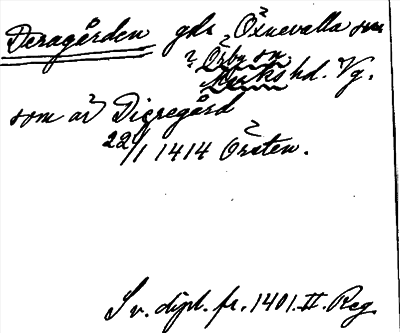 Deragården gds Öxnevalla sn
? Örby sn
Marks hd. Vg.
som av Digregård
22/1 1414 Örsten.
Sv. dipl. fr. 1401. II. Reg.